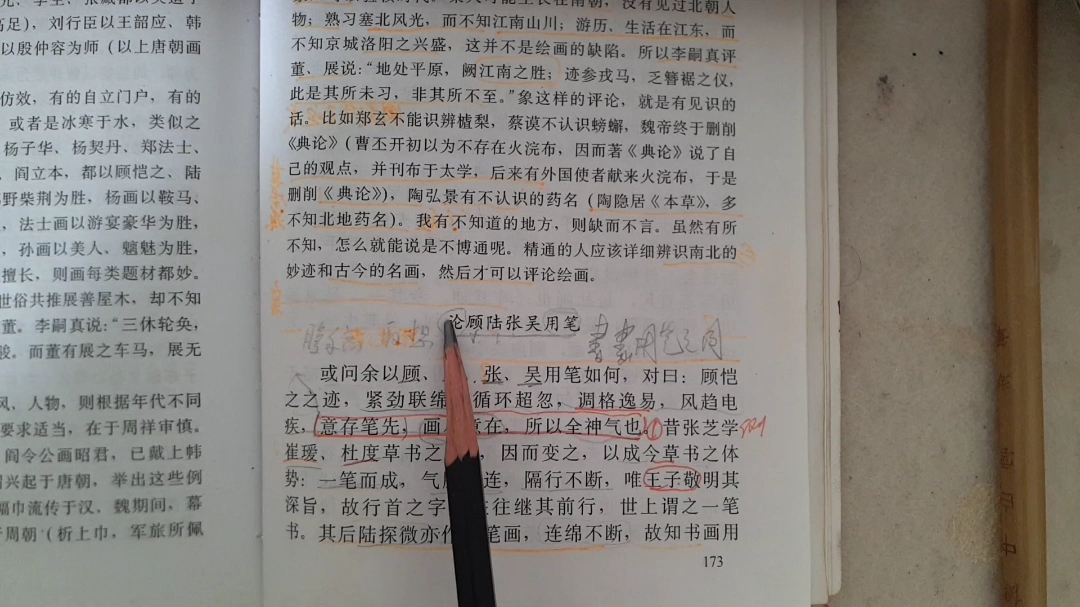 高足），刘行臣以王韶应、韩
以殷仲容为师（以上唐朝画
仿效，有的自立门户，有的
或者是冰寒于水，类似之
杨子华、杨契丹、郑法士、
阎立本，都以顾恺之、陆
野柴荆为胜，杨画以鞍马、
，法士画以游宴豪华为胜，
，孙画以美人、魑魅为胜，
擅长，则画每类题材都妙。
世俗共推展善屋木，却不知
董。李嗣真说：“三休轮奂，
骏。而董有展之车马，展无
风，人物，则根据年代不同
要求适当，在于周祥审慎。
阎令公画昭君，已戴上帏
兴起于唐朝，举出这些例
幅巾流传于汉、魏期间，幕
于周朝（析上巾，军旅所佩
没有见过北朝人
物；熟习塞北风光，而不知江南山川；游历、生活在江东，而
不知京城洛阳之兴盛，这并不是绘画的缺陷。所以李嗣真评
董、展说：“地处平原，阙江南之胜；迹参戎马，乏簪裾之仪，
此是其所未习，非其所不至。”象这样的评论，就是有见识的
话。比如郑玄不能识辨樝梨，蔡谟不认识螃蟹，魏帝终于删削
《典论》（曹丕开初以为不存在火浣布，因而著《典论》说了自
己的观点，并刊布于太学，后来有外国使者献来火浣布，于是
删削《典论》），陶弘景有不认识的药名（陶隐居《本草》，多
不知北地药名）。我有不知道的地方，则缺而不言。虽然有所
不知，怎么就能说是不博通呢。精通的人应该详细辨识南北的
妙迹和古今的名画，然后才可以评论绘画。
论顾陆张吴用笔
书画用笔之同
或问余以顾、张、吴用笔如何，对曰：顾恺
之之迹，紧劲联绵，循环超忽，调格逸易，风趋电
疾，意存笔先，画尽意在，所以全神气也。①昔张芝学
崔瑗、杜度草书之，因而变之，以成今草书之体
势：一笔而成，气脉通连，隔行不断，唯王子敬明其
深旨，故行首之字往往继其前行，世上谓之一笔
书。其后陆探微亦作一笔画，连绵不断，故知书画用
173